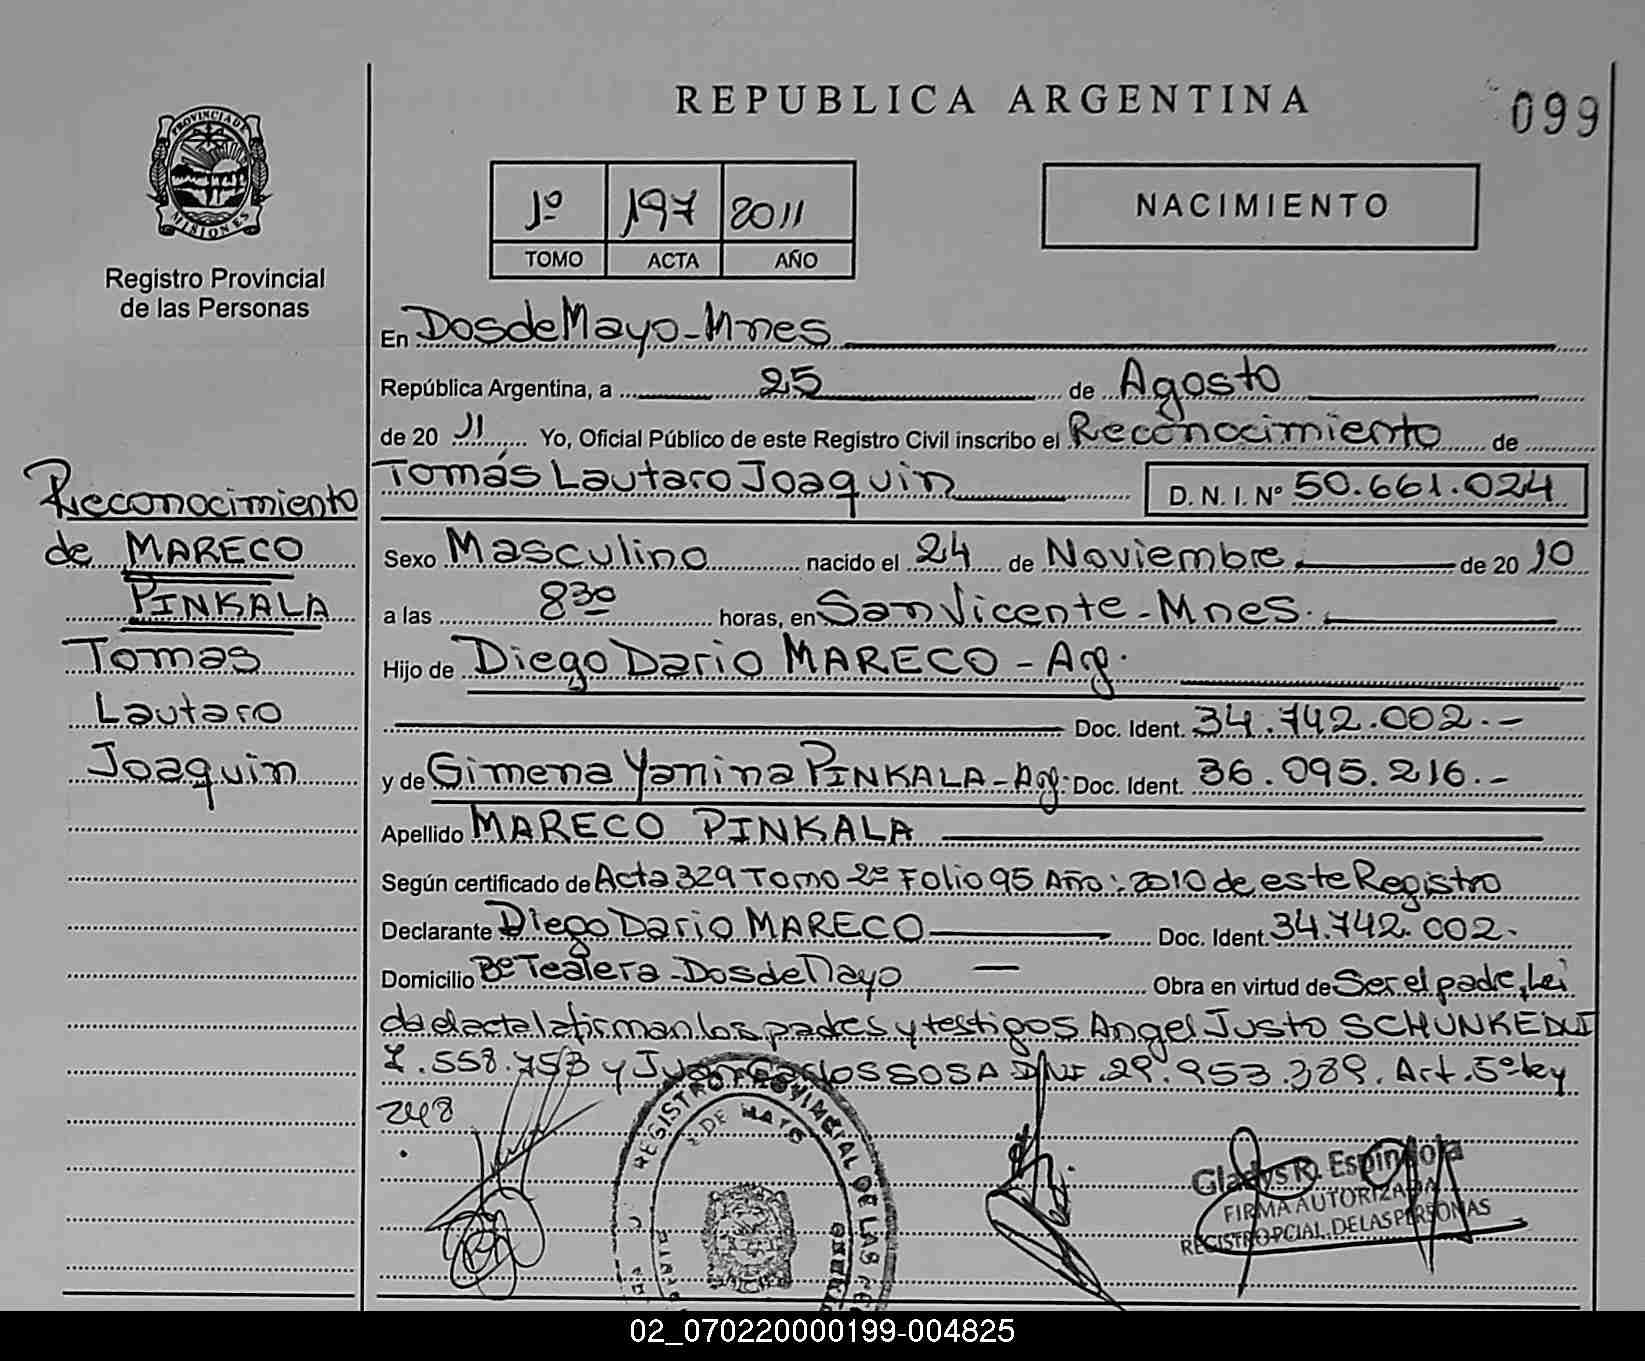 REPUBLICA ARGENTINA
099
PROVINCIA DE
MISIONES
Registro Provincial
de las Personas
1º 197 2011
TOMO ACTA AÑO
NACIMIENTO
En Dos de Mayo - Mnes
República Argentina, a 25 de Agosto
de 20 11 Yo, Oficial Público de este Registro Civil inscribo el Reconocimiento de
Tomás Lautaro Joaquin D.N.I. Nº 50.661.024
Reconocimiento
de MARECO
PINKALA
Tomas
Lautaro
Joaquin
Sexo Masculino nacido el 24 de Noviembre de 20 10
a las 8 30 horas, en San Vicente - Mnes.
Hijo de Diego Dario MARECO - Arg.
Doc. Ident. 34.742.002.-
y de Gimena Yanina PINKALA - Arg. Doc. Ident. 36.095.216.-
Apellido MARECO PINKALA
Según certificado de Acta 329 Tomo 2º Folio 95 Año: 2010 de este Registro
Declarante Diego Dario MARECO Doc. Ident. 34.742.002.
Domicilio Bº Tealera - Dos de Mayo — Obra en virtud de Ser el padre, Lei
da el acta la firman los padres y testigos Angel Justo SCHUNKE DNI
7.558.753 y Juan Carlos SOSA DNI 29.953.389. Art. 5º ley
248
REGISTRO PROVINCIAL DE LAS
2 DE MAYO
Gladys R. Espindola
FIRMA AUTORIZADA
REGISTRO PCIAL. DE LAS PERSONAS
02_070220000199-004825